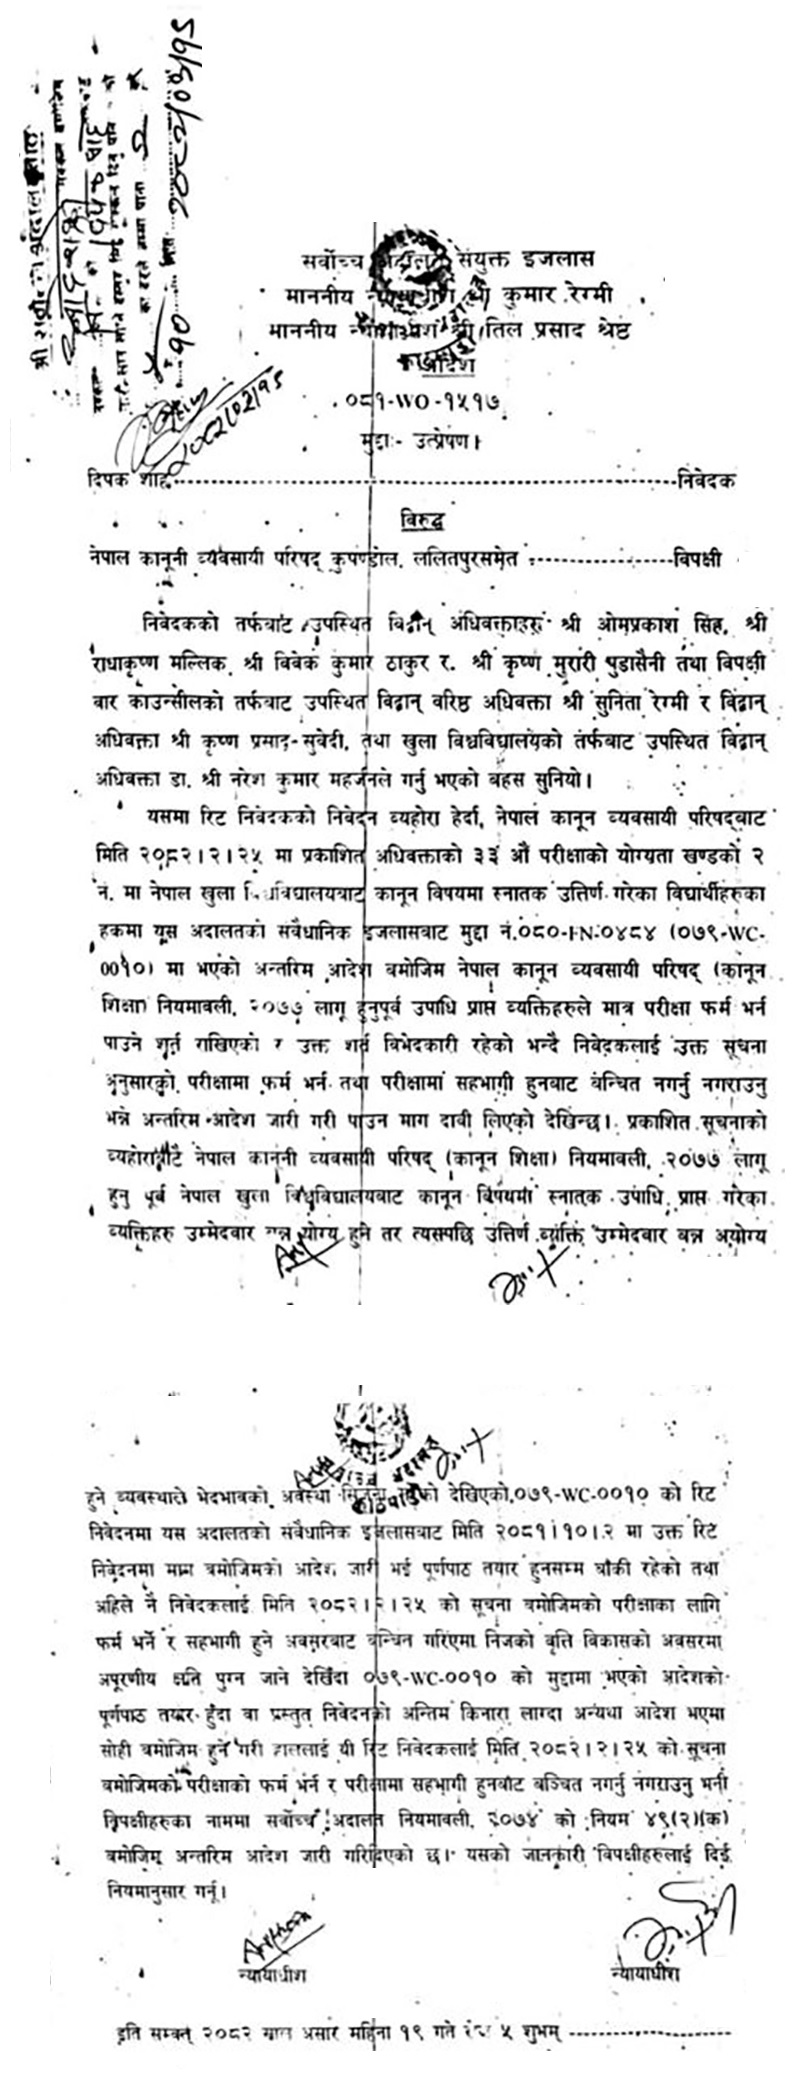 सर्वोच्च अदालत संयुक्त इजलास
माननीय न्यायाधीश श्री कुमार रेग्मी
माननीय न्यायाधीश श्री तिल प्रसाद श्रेष्ठ
आदेश
०८१-WO-१५१७
मुद्दाः- उत्प्रेषण।
दिपक शाह------------------------------निवेदक
विरुद्ध
नेपाल कानूनी व्यवसायी परिषद् कुपण्डोल, ललितपुरसमेत ---------------विपक्षी
निवेदकको तर्फबाट उपस्थित विद्वान् अधिवक्ताहरु श्री ओमप्रकाश सिंह, श्री
राधाकृष्ण मल्लिक, श्री विवेक कुमार ठाकुर र श्री कृष्ण मुरारी पुडासैनी तथा विपक्षी
बार काउन्सीलको तर्फबाट उपस्थित विद्वान् वरिष्ठ अधिवक्ता श्री सुनिता रेग्मी र विद्वान्
अधिवक्ता श्री कृष्ण प्रसाद सुवेदी, तथा खुला विश्वविद्यालयको तर्फबाट उपस्थित विद्वान्
अधिवक्ता डा. श्री नरेश कुमार महर्जनले गर्नु भएको बहस सुनियो।
यसमा रिट निवेदकको निवेदन व्यहोरा हेर्दा, नेपाल कानून व्यवसायी परिषद्बाट
मिति २०८२।२।२५ मा प्रकाशित अधिवक्ताको ३३ औं परीक्षाको योग्यता खण्डको २
नं. मा नेपाल खुला विश्वविद्यालयबाट कानून विषयमा स्नातक उत्तिर्ण गरेका विद्यार्थीहरुका
हकमा यस अदालतको संवैधानिक इजलासबाट मुद्दा नं.०८०-FN-०४८४ (०७९-WC-
००१०) मा भएको अन्तरिम आदेश बमोजिम नेपाल कानून व्यवसायी परिषद् (कानून
शिक्षा) नियमावली, २०७७ लागू हुनुपूर्व उपाधि प्राप्त व्यक्तिहरुले मात्र परीक्षा फर्म भर्न
पाउने शर्त राखिएको र उक्त शर्त विभेदकारी रहेको भन्दै निवेदकलाई उक्त सूचना
अनुसारको परीक्षामा फर्म भर्न तथा परीक्षामा सहभागी हुनबाट बन्चित नगर्नु नगराउनु
भन्ने अन्तरिम आदेश जारी गरी पाउन माग दावी लिएको देखिन्छ। प्रकाशित सूचनाको
व्यहोराबाटै नेपाल कानूनी व्यवसायी परिषद् (कानून शिक्षा) नियमावली, २०७७ लागू
हुनु पूर्व नेपाल खुला विश्वविद्यालयबाट कानून विषयमा स्नातक उपाधि प्राप्त गरेका
व्यक्तिहरु उम्मेदवार बन्न योग्य हुने तर त्यसपछि उत्तिर्ण व्यक्ति उम्मेदवार बन्न अयोग्य
हुने व्यवस्थाले भेदभावको अवस्था सिर्जना भएको देखिएको,०७९-WC-००१० को रिट
निवेदनमा यस अदालतको संवैधानिक इजलासबाट मिति २०८१।१०।२ मा उक्त रिट
निवेदनमा माग बमोजिमको आदेश जारी भई पूर्णपाठ तयार हुनसम्म बाँकी रहेको तथा
अहिले नै निवेदकलाई मिति २०८२।२।२५ को सूचना बमोजिमको परीक्षाका लागि
फर्म भर्ने र सहभागी हुने अवसरबाट बन्चित गरिएमा निजको वृत्ति विकासको अवसरमा
अपूरणीय क्षति पुग्न जाने देखिँदा ०७९-WC-००१० को मुद्दामा भएको आदेशको
पूर्णपाठ तयार हुँदा वा प्रस्तुत निवेदनको अन्तिम किनारा लाग्दा अन्यथा आदेश भएमा
सोही बमोजिम हुने गरी हाललाई यी रिट निवेदकलाई मिति २०८२।२।२५ को सूचना
बमोजिमको परीक्षाको फर्म भर्न र परीक्षामा सहभागी हुनबाट बञ्चित नगर्नु नगराउनु भनी
विपक्षीहरुका नाममा सर्वोच्च अदालत नियमावली, २०७४ को नियम ४९(२)(क)
बमोजिम अन्तरिम आदेश जारी गरिदिएको छ। यसको जानकारी विपक्षीहरुलाई दिई
नियमानुसार गर्नू।
न्यायाधीश न्यायाधीश
इति सम्वत् २०८२ साल असार महिना १९ गते रोज ५ शुभम् ---------------